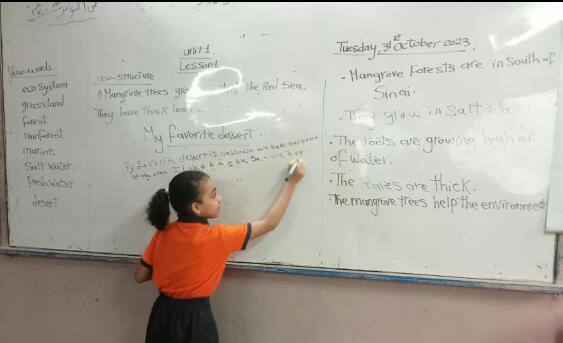 unit 1
Lesson 1
Tuesday, 31st October 2023
New-words.
eco system
grassland
forest
rainforest
marine
Salt water
Fresh water
desert
New-structure
Mangrove trees the Red Sea,
They have thick
My Favorite dessert.
My favorite desert is basbousa we bake basbousa
at my
we buy
. Mangrove Forests are in South of
Sinai.
. They grow in Salt water
. The roots are growing high out
of water.
. The leaves are thick.
. The mangrove trees help the environment